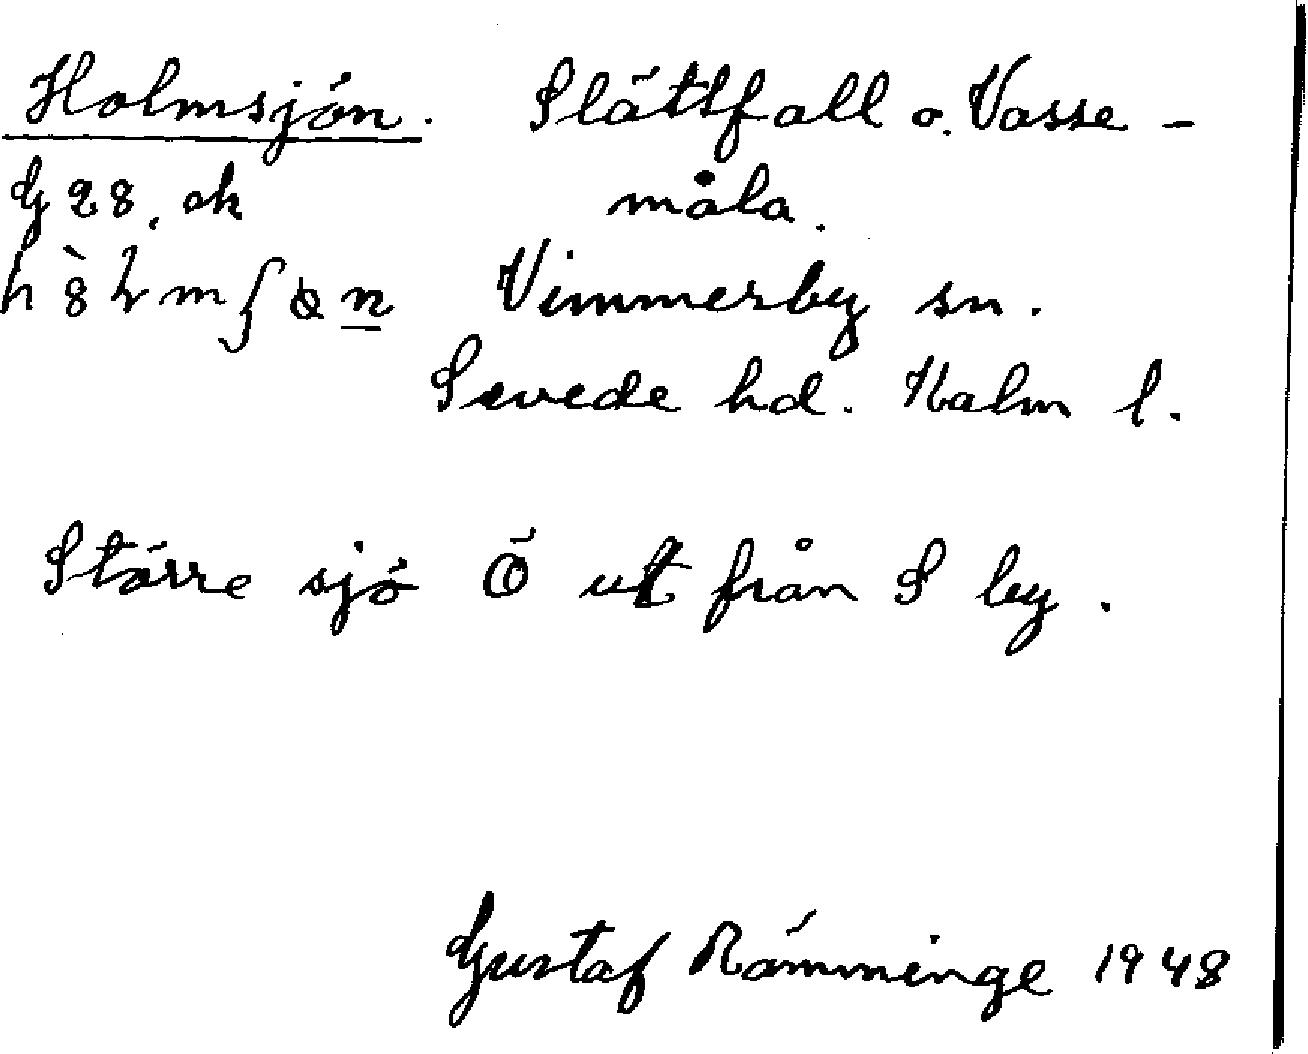 Holmsjön. Slättfall o. Vasse-
G 28, ek måla.
Vimmerby sn.
Sevede hd. Kalm l.
Större sjö Ö ut från S by.
Gustaf Rämminge 1948